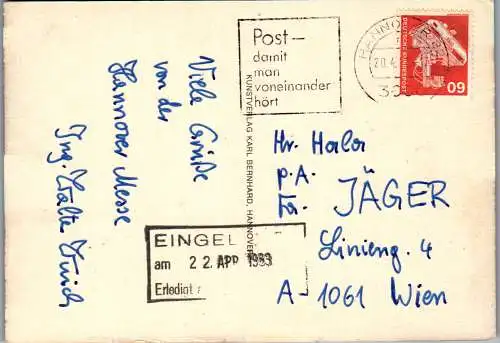 Viele Grüße
von der
Hannover Messe
Ing. Walter
Post—
damit
man
voneinander
hört
HANNOVER
20.4.
DEUTSCHE BUNDESPOST
60
KUNSTVERLAG KARL BERNHARD, HANNOVER
Hr. Haler
p.A.
Fa. JÄGER
Linieng. 4
A-1061 Wien
EINGEL
am 22. APR 1983
Erledigt